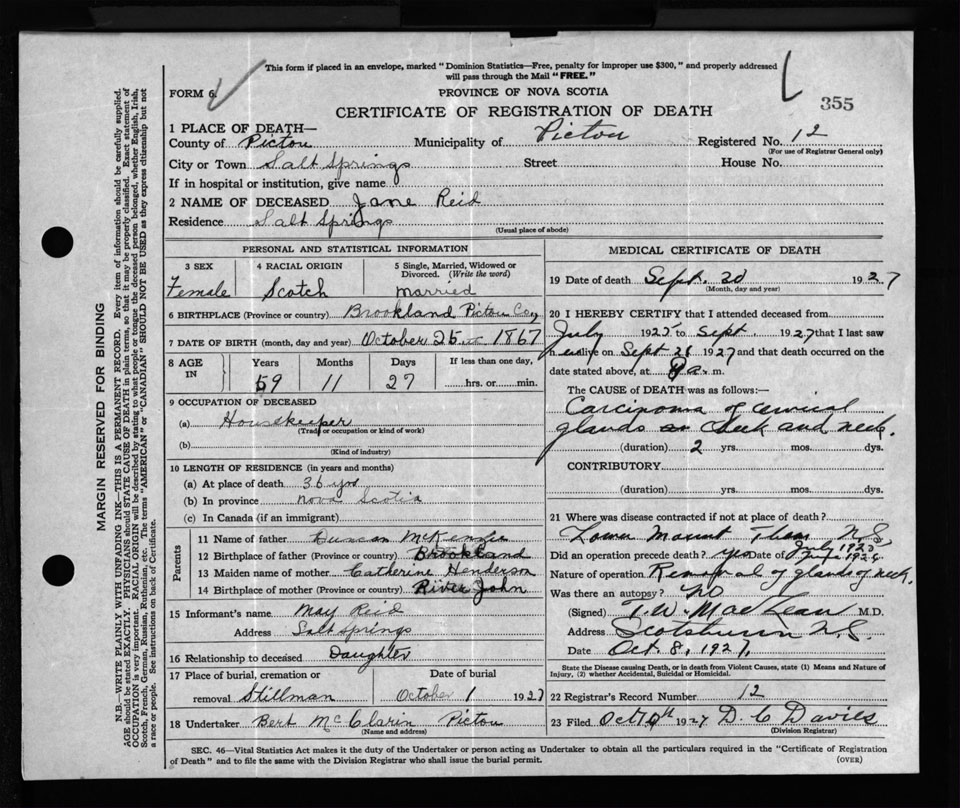 This form if placed in an envelope, marked "Dominion Statistics—Free, penalty for improper use $300," and properly addressed
will pass through the Mail "FREE."
FORM 6
PROVINCE OF NOVA SCOTIA
355
CERTIFICATE OF REGISTRATION OF DEATH
1 PLACE OF DEATH—
County of Pictou Municipality of Pictou Registered No. 12
(For use of Registrar General only)
City or Town Salt Springs Street House No.
If in hospital or institution, give name
2 NAME OF DECEASED Jane Reid
Residence Salt Springs
(Usual place of abode)
PERSONAL AND STATISTICAL INFORMATION
3 SEX 4 RACIAL ORIGIN 5 Single, Married, Widowed or
Divorced. (Write the word)
Female Scotch Married
6 BIRTHPLACE (Province or country) Brookland Pictou Coy
7 DATE OF BIRTH (month, day and year) October 25 1867
8 AGE IN Years Months Days If less than one day,
59 11 27 hrs. or min.
9 OCCUPATION OF DECEASED
(a) Housekeeper
(Trade or occupation or kind of work)
(b)
(Kind of industry)
10 LENGTH OF RESIDENCE (in years and months)
(a) At place of death 36 yrs
(b) In province Nova Scotia
(c) In Canada (if an immigrant)
Parents
11 Name of father Duncan McKenzie
12 Birthplace of father (Province or country) Brookland
13 Maiden name of mother Catherine Henderson
14 Birthplace of mother (Province or country) River John
15 Informant's name May Reid
Address Salt Springs
16 Relationship to deceased Daughter
17 Place of burial, cremation or Date of burial
removal Stillman October 1 1927
18 Undertaker Bert McClarin Pictou
(Name and address)
MEDICAL CERTIFICATE OF DEATH
19 Date of death Sept. 30 1927
(Month, day and year)
20 I HEREBY CERTIFY that I attended deceased from
July 1925 to Sept. 1927 that I last saw
her alive on Sept 28 1927 and that death occurred on the
date stated above, at a.m.
The CAUSE of DEATH was as follows:—
Carcinoma of cervical
glands cheek and neck.
(duration) 2 yrs. mos. dys.
CONTRIBUTORY
(duration) yrs. mos. dys.
21 Where was disease contracted if not at place of death?
Lower Mount Thom N.S.
Did an operation precede death? yes Date of July 1925
1926
Nature of operation Removal of glands of neck.
Was there an autopsy? No
(Signed) T. W. MacLean M.D.
Address Scotsburn N.S.
Date Oct. 8, 1927
State the Disease causing Death, or in death from Violent Causes, state (1) Means and Nature of
Injury, (2) whether Accidental, Suicidal or Homicidal.
22 Registrar's Record Number 12
23 Filed Oct 10th 1927 D. C Davies
(Division Registrar)
SEC. 46—Vital Statistics Act makes it the duty of the Undertaker or person acting as Undertaker to obtain all the particulars required in the "Certificate of Registration
of Death" and to file the same with the Division Registrar who shall issue the burial permit.
(OVER)
MARGIN RESERVED FOR BINDING
N.B.—WRITE PLAINLY, WITH UNFADING INK—THIS IS A PERMANENT RECORD. Every item of information should be carefully supplied.
AGE should be stated EXACTLY. PHYSICIANS should STATE CAUSE OF DEATH in plain terms, so that it may be properly classified. Exact statement of
OCCUPATION is very important. RACIAL ORIGIN will be described by stating to what people or tongue the deceased person belonged, whether English, Irish,
Scotch, French, German, Russian, Ruthenian, etc. The terms "AMERICAN" or "CANADIAN" SHOULD NOT BE USED as they express citizenship but not
a race or people. See instructions on back of Certificate.